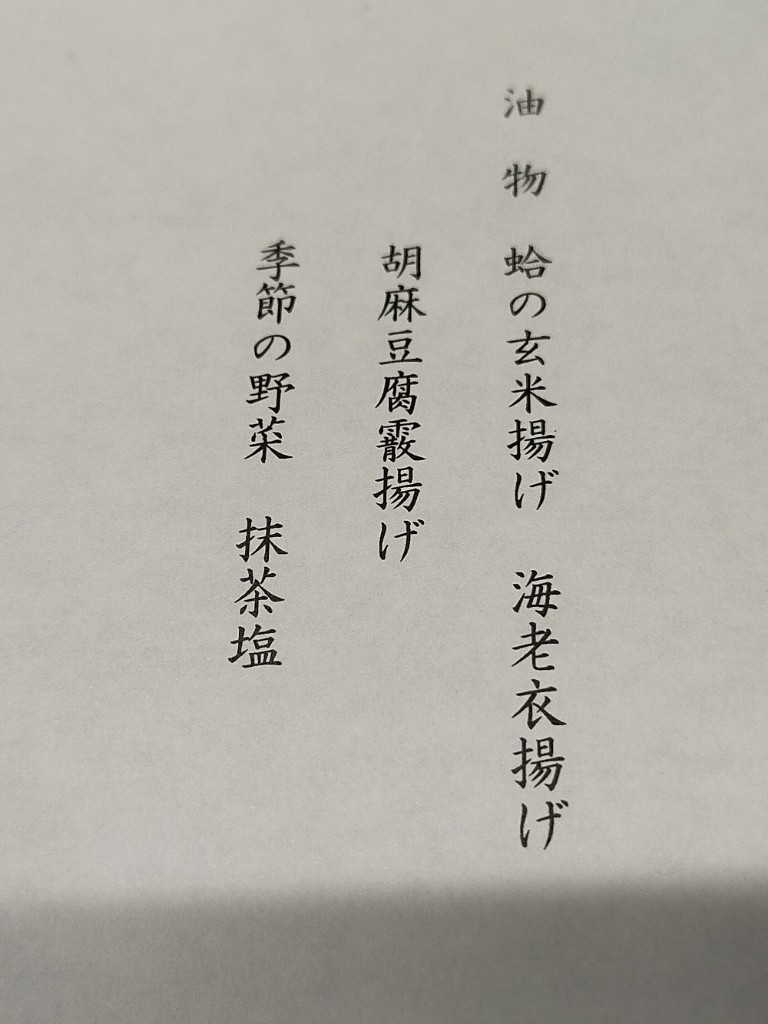 油 物 蛤の玄米揚げ 海老衣揚げ
胡麻豆腐霰揚げ
季節の野菜 抹茶塩